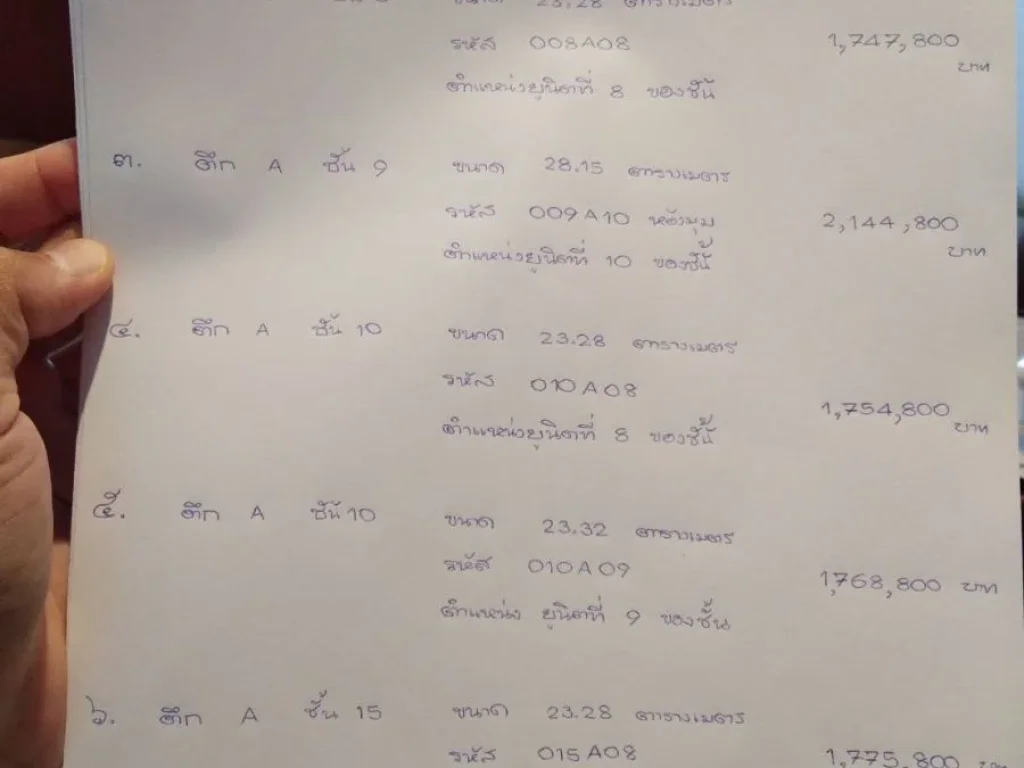 ขนาด 23.28 ตารางเมตร
รหัส 008A08 1,747,800
บาท
ตำแหน่งยูนิตที่ 8 ของชั้น
๓. ตึก A ชั้น 9 ขนาด 28.15 ตารางเมตร
รหัส 009A10 ห้องมุม 2,144,800
บาท
ตำแหน่งยูนิตที่ 10 ของชั้น
๔. ตึก A ชั้น 10 ขนาด 23.28 ตารางเมตร
รหัส 010A08
1,754,800
บาท
ตำแหน่งยูนิตที่ 8 ของชั้น
๕. ตึก A ชั้น 10 ขนาด 23.32 ตารางเมตร
รหัส 010A09
1,768,800 บาท
ตำแหน่ง ยูนิตที่ 9 ของชั้น
๖. ตึก A ชั้น 15 ขนาด 23.28 ตารางเมตร
รหัส 015A08 1,775,800 บาท